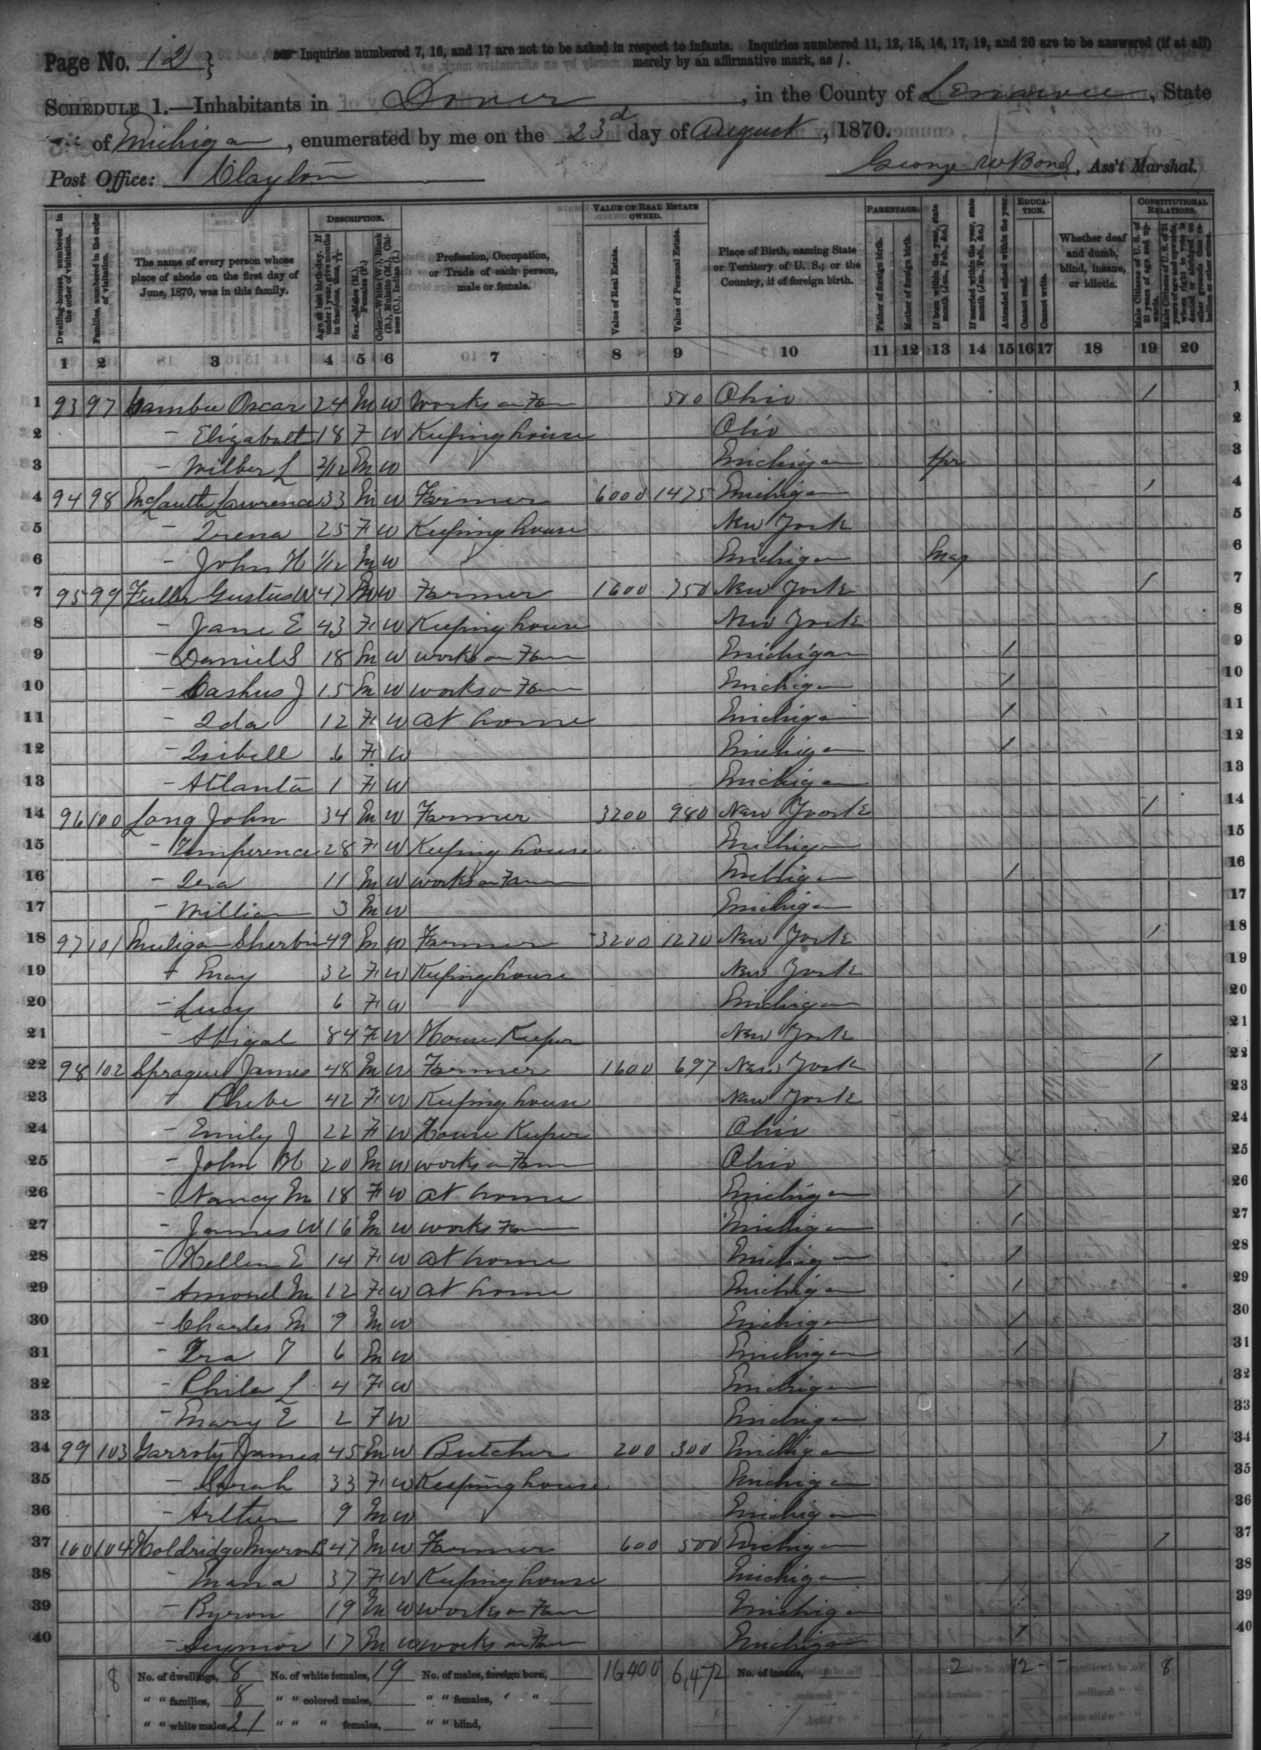 Page No. 12 } Inquiries numbered 7, 16, and 17 are not to be asked in respect to infants. Inquiries numbered 11, 12, 15, 16, 17, 19, and 20 are to be answered (if at all)
merely by an affirmative mark, as /.
SCHEDULE 1.—Inhabitants in Dover, in the County of, State
of Michigan, enumerated by me on the 23d day of August, 1870.
Post Office: Clayton George W Bond, Ass't Marshal.
DESCRIPTION. VALUE OF REAL ESTATE OWNED. PARENTAGE. EDUCATION. CONSTITUTIONAL RELATIONS.
Dwelling-houses, numbered in the order of visitation. Families, numbered in the order of visitation. The name of every person whose place of abode on the first day of June, 1870, was in this family. Profession, Occupation, or Trade of each person, male or female. Value of Real Estate. Value of Personal Estate. Place of Birth, naming State or Territory of U. S.; or the Country, if of foreign birth. Father of foreign birth. Mother of foreign birth. If born within the year, state month (Jan., Feb., &c.) If married within the year, state month (Jan., Feb., &c.) Attended school within the year. Cannot read. Cannot write. Whether deaf and dumb, blind, insane, or idiotic.
1 2 3 4 5 6 7 8 9 10 11 12 13 14 15 16 17 18 19 20
1 93 97 Oscar 24 M W Works on Farm 500 Ohio / 1
2 – Elizabeth 18 F W Keeping house Ohio 2
3 – Wilber L 2/12 M W Michigan Apr 3
4 94 98 McLauth Lawrence 33 M W Farmer 6000 1475 Michigan / 4
5 – Irena 25 F W Keeping house New York 5
6 – John H 1/12 M W Michigan May 6
7 95 99 Fuller Gustus W 47 M W Farmer 1600 750 New York / 7
8 – Jane E 43 F W Keeping house New York 8
9 – Daniel S 18 M W works on Farm Michigan / 9
10 – Cashus J 15 M W works on Farm Michigan / 10
11 – Ida 12 F W at home Michigan / 11
12 – Isibell 6 F W Michigan / 12
13 – Atlanta 1 F W Michigan 13
14 96 100 Long John 34 M W Farmer 3200 980 New York / 14
15 – Temperence 28 F W Keeping house Michigan 15
16 – Ira 11 M W works on Farm Michigan / 16
17 – William 3 M W Michigan 17
18 97 101 Muligan Sherbin 49 M W Farmer 3200 1270 New York / 18
19 + May 32 F W Keeping house New York 19
20 – Lucy 6 F W Michigan 20
21 – Abigal 84 F W House Keeper New York 21
22 98 102 Sprague James 48 M W Farmer 1600 697 New York / 22
23 + Phebe 42 F W Keeping house New York 23
24 – Emily J 22 F W House Keeper Ohio 24
25 – John H 20 M W works on Farm Ohio 25
26 – Nancy M 18 F W at home Michigan / 26
27 – James W 16 M W works Farm Michigan / 27
28 – Hellen E 14 F W at home Michigan / 28
29 – M 12 F W at home Michigan / 29
30 – Charles M 9 M W Michigan / 30
31 – Ira T 6 M W Michigan / 31
32 – Phila L 4 F W Michigan 32
33 – Mary E 2 F W Michigan 33
34 99 103 Garroty James 45 M W Butcher 200 300 Michigan / 34
35 – Sarah 33 F W Keeping house Michigan 35
36 – Arthur 9 M W Michigan 36
37 100 104 Holdridge Myron B 47 M W Farmer 600 500 Michigan / 37
38 – Maria 37 F W Keeping house Michigan 38
39 – Byron 19 M W works on Farm Michigan 39
40 – Seymor 17 M W works on Farm Michigan / 40
8 No. of dwellings, 8 No. of white females, 19 No. of males, foreign born, 16,400 6,472 No. of insane, 2 12 - - 8
" " families, 8 " " colored males, " " females, " "
" " white males, 21 " " " females, " " blind,